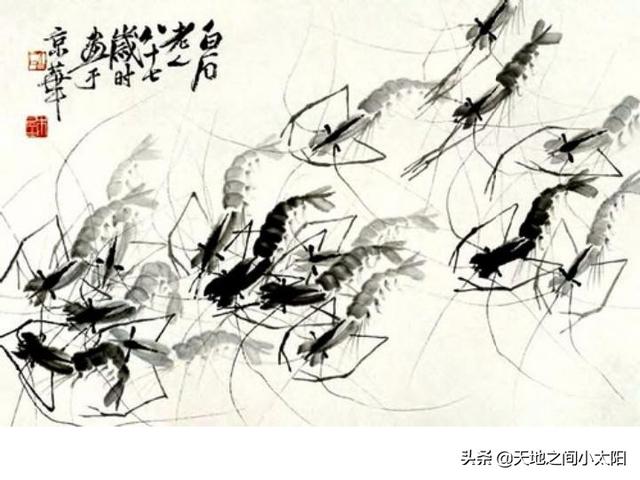 白石
老人
八十七
歲时
画于
京華
头条 @天地之间小太阳